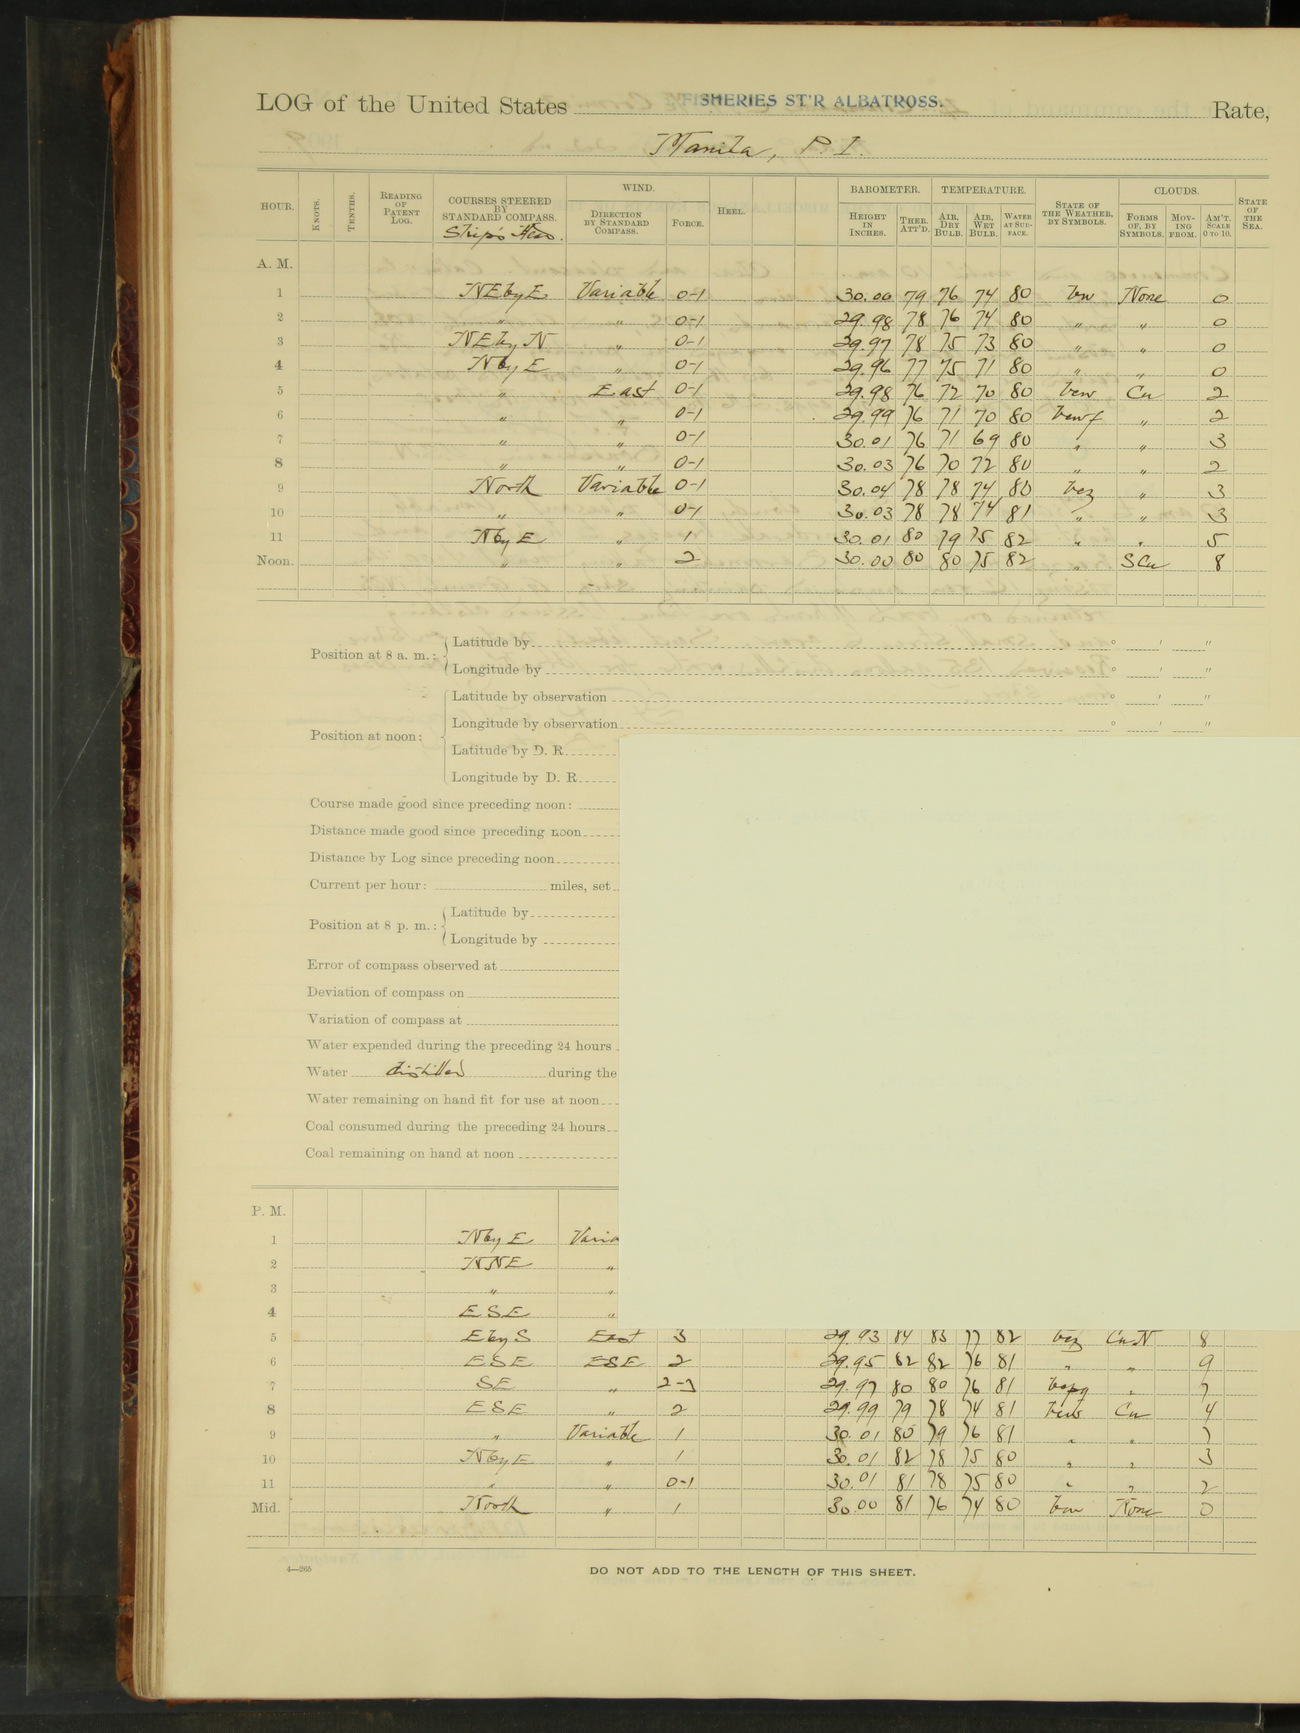 LOG of the United States FISHERIES ST'R ALBATROSS. Rate,
Manila, P. I.
HOUR. KNOTS. TENTHS. READING OF PATENT LOG. COURSES STEERED BY STANDARD COMPASS. Ship's Head. WIND. DIRECTION BY STANDARD COMPASS. FORCE. HEEL. BAROMETER. HEIGHT IN INCHES. THER. ATT'D. TEMPERATURE. AIR, DRY BULB. AIR, WET BULB. WATER AT SURFACE. STATE OF THE WEATHER, BY SYMBOLS. CLOUDS. FORMS OF, BY SYMBOLS. MOVING FROM. AM'T. SCALE 0 TO 10. STATE OF THE SEA.
A. M.
1 NE by E Variable 0-1 30.00 79 76 74 80 bw None 0
2 " " 0-1 29.98 78 76 74 80 " " 0
3 NE by N " 0-1 29.97 78 75 73 80 " " 0
4 N by E " 0-1 29.96 77 75 71 80 " " 0
5 " East 0-1 29.98 76 72 70 80 bcw Cu 2
6 " " 0-1 29.99 76 71 70 80 bcwf " 2
7 " " 0-1 30.01 76 71 69 80 " " 3
8 " " 0-1 30.03 76 70 72 80 " " 2
9 North Variable 0-1 30.04 78 78 74 80 bcz " 3
10 " " 0-1 30.03 78 78 74 81 " " 3
11 N by E " 1 30.01 80 79 75 82 " " 5
Noon. " " 2 30.00 80 80 75 82 " S Cu 8
Position at 8 a. m.: Latitude by ° ' "
Longitude by ° ' "
Position at noon: Latitude by observation ° ' "
Longitude by observation ° ' "
Latitude by D. R.
Longitude by D. R.
Course made good since preceding noon:
Distance made good since preceding noon
Distance by Log since preceding noon
Current per hour: miles, set
Position at 8 p. m.: Latitude by
Longitude by
Error of compass observed at
Deviation of compass on
Variation of compass at
Water expended during the preceding 24 hours
Water distilled during the
Water remaining on hand fit for use at noon
Coal consumed during the preceding 24 hours
Coal remaining on hand at noon
P. M.
1 N by E Varia
2 NNE "
3 " "
4 ESE "
5 E by S East 3 29.93 84 83 77 82 bcz Cu N 8
6 ESE ESE 2 29.95 82 82 76 81 " " 9
7 SE " 2-3 29.97 80 80 76 81 bcpq " 7
8 ESE " 2 29.99 79 78 74 81 bcw Cu 4
9 " Variable 1 30.01 80 79 76 81 " " 7
10 N by E " 1 30.01 82 78 75 80 " " 3
11 " " 0-1 30.01 81 78 75 80 " " 2
Mid. North " 1 30.00 81 76 74 80 bw None 0
4—265
DO NOT ADD TO THE LENGTH OF THIS SHEET.